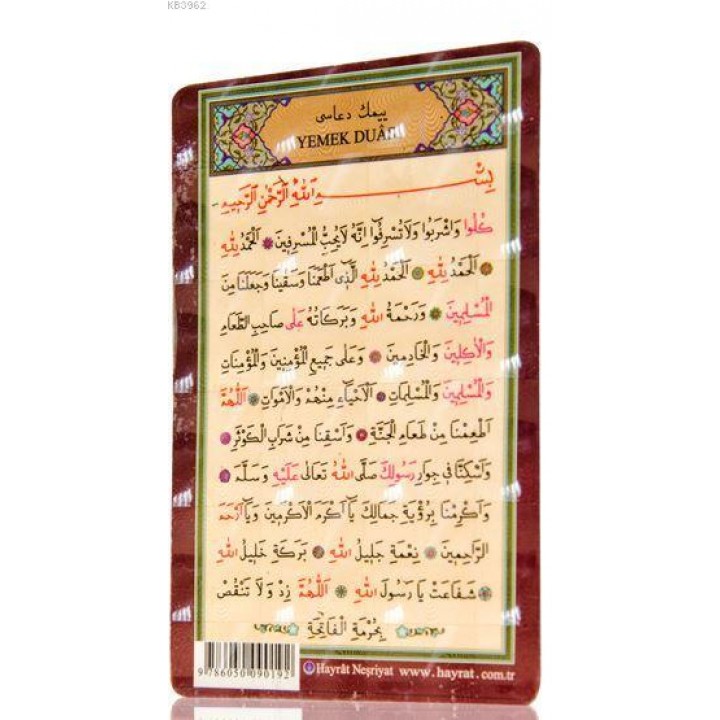 KB3962
ييمك دعاسى
YEMEK DUÂSI
بِسْــــــمِ اللهِ الرَّحْمٰنِ الرَّحِيمِ
كُلُوا وَاشْرَبُوا وَلَا تُسْرِفُوا اِنَّهُ لَا يُحِبُّ الْمُسْرِفِينَ ۞ اَلْحَمْدُ لِلّٰهِ
اَلْحَمْدُ لِلّٰهِ ۞ اَلْحَمْدُ لِلّٰهِ الَّذِى اَطْعَمَنَا وَسَقَينَا وَجَعَلَنَا مِنَ
الْمُسْلِمِينَ ۞ وَرَحْمَةُ اللهِ وَبَرَكَاتُهُ عَلٰى صَاحِبِ الطَّعَامِ
وَالْاٰكِلِينَ وَالْخَادِمِينَ ۞ وَعَلٰى جَمِيعِ الْمُؤْمِنِينَ وَالْمُؤْمِنَاتِ
وَالْمُسْلِمِينَ وَالْمُسْلِمَاتِ ۞ اَلْاَحْيَاءِ مِنْهُمْ وَالْاَمْوَاتِ ۞ اَللّٰهُمَّ
اَطْعِمْنَا مِنْ طَعَامِ الْجَنَّةِ ۞ وَاَسْقِنَا مِنْ شَرَابِ الْكَوْثَرِ ۞
وَاَسْكِنَّا فِى جِوَارِ رَسُولِكَ صَلَّى اللهُ تَعَالٰى عَلَيْهِ وَسَلَّمَ ۞
وَاَكْرِمْنَا بِرُؤْيَةِ جَمَالِكَ يَا اَكْرَمَ الْاَكْرَمِينَ وَيَا اَرْحَمَ
الرَّاحِمِينَ ۞ نِعْمَةِ جَلِيلُ اللهِ ۞ بَرَكَةِ خَلِيلُ اللهِ
۞ شَفَاعَتْ يَا رَسُولَ اللهِ ۞ اَللّٰهُمَّ زِدْ وَلَا تَنْقُصْ ۞
بِحُرْمَةِ الْفَاتِحَةِ
9 786050 090192
Hayrât Neşriyat www.hayrat.com.tr